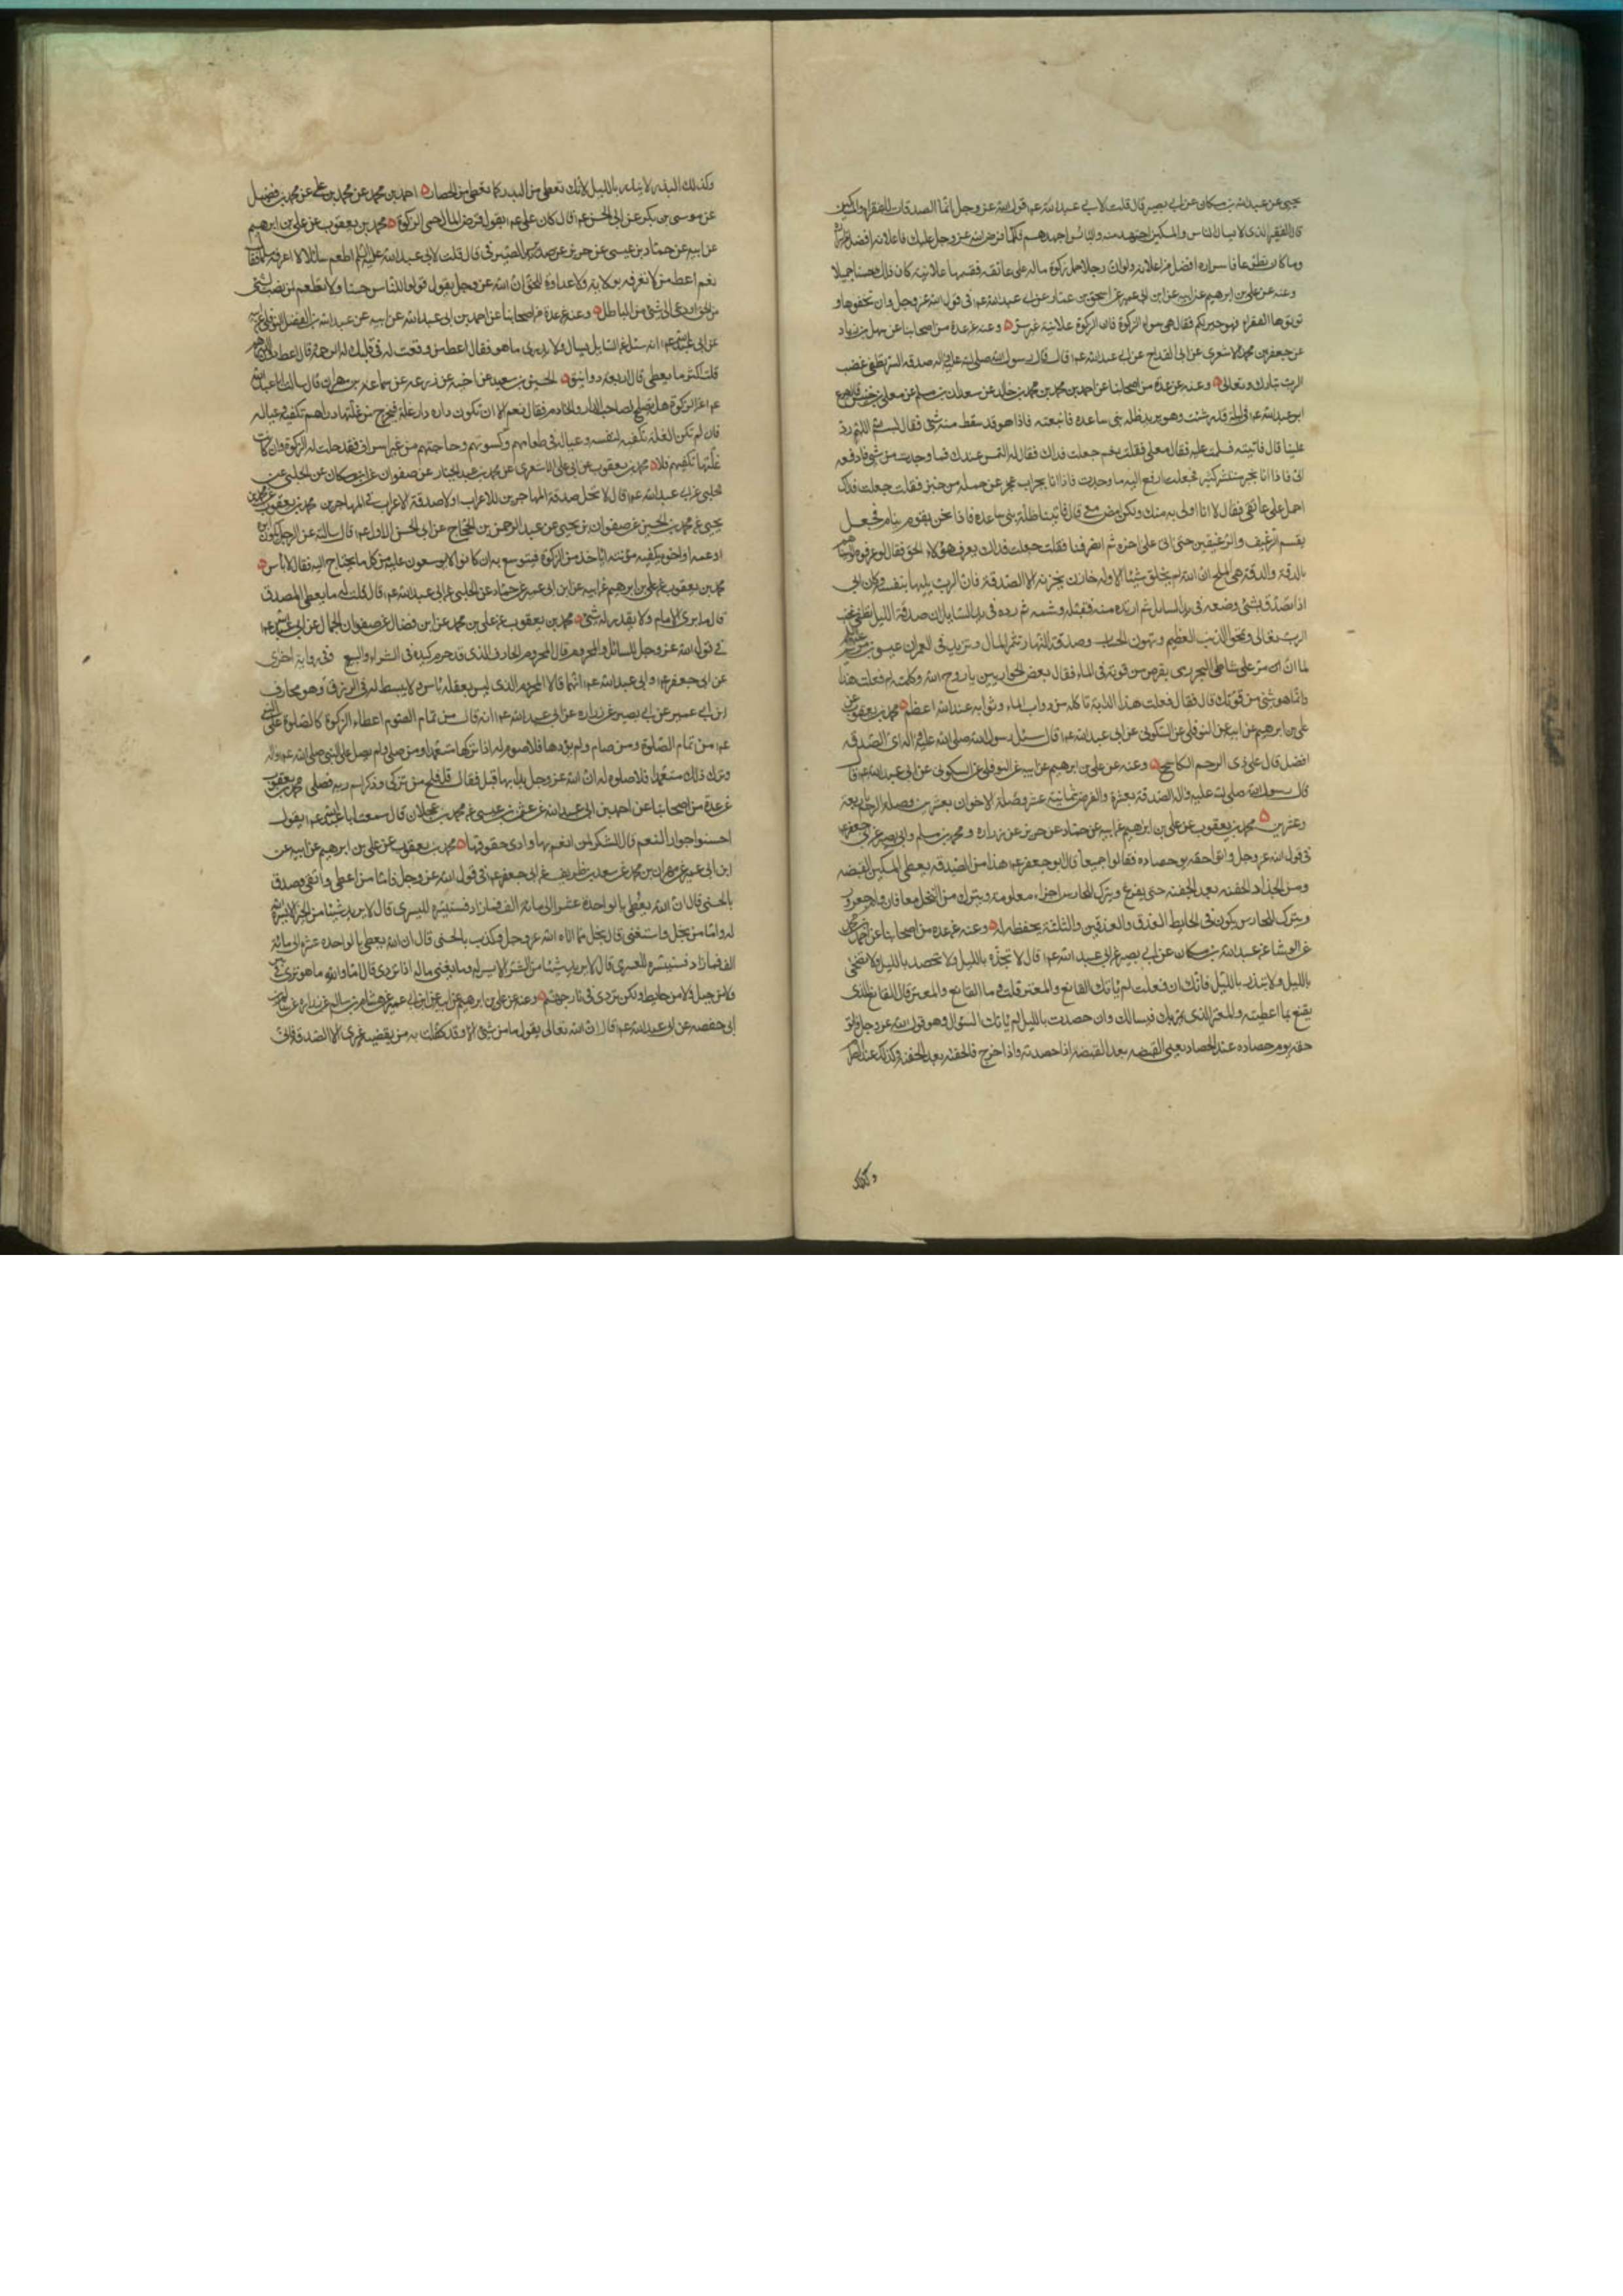 يحيى عن عبدالله بن مسكان عن ابي بصير قال قلت لابي عبدالله ع قول الله عز وجل انما الصدقات للفقراء والمساكين
قال الفقير الذي لا يسال الناس والمسكين اجهد منه والبائس اجهدهم فكلما فرض الله عز وجل عليك فاعلانه افضل من اسراره
وما كان تطوعا فاسراره افضل من اعلانه ولو ان رجلا حمل زكوة ماله على عاتقه فقسمها علانية كان ذلك حسنا جميلا
وعنه عن علي بن ابرهيم عن ابيه عن ابن ابي عمير عن اسحق بن عمار عن ابي عبدالله ع في قول الله عز وجل وان تخفوها و
تؤتوها الفقراء فهو خير لكم فقال هي سواء الزكوة فان الزكوة علانية غير سر وعنه عن عدة من اصحابنا عن سهل بن زياد
عن جعفر بن محمد الاشعري عن ابن القداح عن ابي عبدالله ع قال قال رسول الله صلى الله عليه واله صدقة السر تطفئ غضب
الرب تبارك وتعالى وعنه عن عدة من اصحابنا عن احمد بن محمد بن خالد عن سعدان بن مسلم عن معلى بن خنيس قال خرج
ابو عبدالله ع في ليلة قد رشت وهو يريد ظلة بني ساعدة فاتبعته فاذا هو قد سقط منه شئ فقال بسم الله اللهم رد
علينا قال فاتيته فسلمت عليه فقال معلى فقلت نعم جعلت فداك فقال لي التمس عندك فما وجدت من شئ فادفعه
الي فاذا انا بخبز منتشر كثير فجعلت ادفع اليه ما وجدت فاذا انا بجراب عجز عن حمله من خبز فقلت جعلت فداك
احمل على عاتقي فقال لا انا اولى به منك ولكن امض معي قال فاتينا ظلة بني ساعدة فاذا نحن بقوم نيام فجعل
يقسم الرغيف والرغيفين حتى اتى على اخره ثم انصرفنا فقلت جعلت فداك يعرف هؤلاء الحق فقال لو عرفوه لواسيناهم
بالدقة والدقة هي الملح ان الله لم يخلق شيئا الا وله خازن يخزنه الا الصدقة فان الرب يليها بنفسه وكان ابي
اذا تصدق بشئ وضعه في يد السايل ثم ارتده منه فقبله وشمه ثم رده في يد السايل ان صدقة الليل تطفئ غضب
الرب تعالى وتمحو الذنب العظيم وتهون الحساب وصدقة النهار تثمر المال وتزيد في العمر ان عيسى بن مريم
لما ان مر على شاطئ البحر رمى بقرص من قوته في الماء فقال بعض الحواريين يا روح الله وكلمته لم فعلت هذا
وانما هو شئ من قوتك قال فقال فعلت هذا لدابة تاكله من دواب الماء وثوابه عند الله اعظم محمد بن يعقوب عن
علي بن ابرهيم عن ابيه عن النوفلي عن السكوني عن ابي عبدالله ع قال سئل رسول الله صلى الله عليه واله اي الصدقة
افضل قال على ذي الرحم الكاشح وعنه عن علي بن ابرهيم عن ابيه عن النوفلي عن السكوني عن ابي عبدالله ع قال
قال رسول الله صلى الله عليه واله الصدقة بعشرة والقرض بثمانية عشر وصلة الاخوان بعشرين وصلة الرحم باربعة
وعشرين محمد بن يعقوب عن علي بن ابرهيم عن ابيه عن حماد عن حريز عن زرارة و محمد بن مسلم وابي بصير عن ابي جعفر ع
في قول الله عز وجل واتوا حقه يوم حصاده فقالوا جميعا قال ابو جعفر ع هذا من الصدقة يعطي المسكين القبضة
ومن الجذاذ الحفنة بعد الحفنة حتى يفرغ ويترك للحارس اجرا معلوما ويترك من النخل معافارة وام جعرور
ويترك للحارس يكون في الحايط العذق والعذقين والثلثة بحفظه له وعنه عن عدة من اصحابنا عن احمد بن محمد
عن الوشا عن عبدالله بن مسكان عن ابي بصير عن ابي عبدالله ع قال لا تجذ بالليل ولا تحصد بالليل ولا تضحي
بالليل ولا تبذر بالليل فانك ان فعلت لم ياتك القانع والمعتر قلت وما القانع والمعتر قال القانع الذي
يقنع بما اعطيته والمعتر الذي يمر بك فيسالك وان حصدت بالليل لم ياتك السؤال وهو قول الله عز وجل واتوا
حقه يوم حصاده عند الحصاد يعني القبضة بعد القبضة اذا حصدته واذا خرج فالحفنة بعد الحفنة وكذلك عند الصرام
وكذلك
وكذلك البذر لا تبذر بالليل لانك تعطي من البذر كما تعطي من الحصاد احمد بن محمد عن محمد بن علي عن محمد بن فضيل
عن موسى بن بكر عن ابي الحسن ع قال كان علي ع يقول قرض المال حمى الزكوة محمد بن يعقوب عن علي بن ابرهيم
عن ابيه عن حماد بن عيسى عن حريز عن سدير الصيرفي قال قلت لابي عبدالله عليه السلم اطعم سائلا لا اعرفه مسلما فقال
نعم اعط من لا تعرفه بولاية ولا عداوة للحق ان الله عز وجل يقول قولوا للناس حسنا ولا تطعم من نصب لشئ
من الحق او دعا الى شئ من الباطل وعنه عن عدة من اصحابنا عن احمد بن ابي عبدالله عن ابيه عن عبدالله بن الفضل النوفلي عن ابيه
عن ابي عبدالله ع انه سئل عن السايل يسال ولا يدرى ما هو فقال اعط من وقعت له في قلبك الرحمة وقال اعط دون الدرهم
قلت اكثر ما يعطى قال اربعة دوانيق الحسين بن سعيد عن اخيه عن زرعة عن سماعة بن مهران قال سالت ابا عبدالله
ع عن الزكوة هل تصلح لصاحب الدار والخادم فقال نعم الا ان تكون داره دار غلة فيخرج من غلتها دراهم تكفيه وعياله
فان لم تكن الغلة تكفيه لنفسه وعياله في طعامهم وكسوتهم وحاجتهم من غير اسراف فقد حلت له الزكوة وان كانت
غلتها تكفيهم فلا محمد بن يعقوب عن ابي علي الاشعري عن محمد بن عبد الجبار عن صفوان عن ابن مسكان عن الحلبي عن
الحلبي عن ابي عبدالله ع قال لا تحل صدقة المهاجرين للاعراب ولا صدقة الاعراب في المهاجرين محمد بن يعقوب عن محمد بن
يحيى عن محمد بن الحسين عن صفوان بن يحيى عن عبد الرحمن بن الحجاج عن ابي الحسن الاول ع قال سالته عن الرجل يكون ابوه
او عمه او اخوه يكفيه مؤنته اياخذ من الزكوة فيتوسع به ان كانوا لا يوسعون عليه من كل ما يحتاج اليه فقال لا باس
محمد بن يعقوب عن علي بن ابرهيم عن ابيه عن ابن ابي عمير عن حماد عن الحلبي عن ابي عبدالله ع قال قلت له ما يعطى المصدق
قال ما يرى الامام ولا يقدر له شئ محمد بن يعقوب عن علي بن محمد عن ابن فضال عن صفوان الجمال عن ابي عبدالله ع
في قول الله عز وجل للسائل والمحروم قال المحروم المحارف الذي قد حرم كد يده في الشراء والبيع وفي رواية اخرى
عن ابي جعفر ع وابي عبدالله ع انهما قالا المحروم الذي ليس بعقله باس ولا يبسط له في الرزق وهو محارف
ابن ابي عمير عن ابي بصير عن زرارة عن ابي عبدالله ع انه قال من تمام الصوم اعطاء الزكوة كالصلوة على النبي
ع من تمام الصلوة ومن صام ولم يؤدها فلا صوم له اذا تركها متعمدا ومن صلى ولم يصل على النبي صلى الله عليه واله
وترك ذلك متعمدا فلا صلوة له ان الله عز وجل بدا بها قبل فقال قد افلح من تزكى وذكر اسم ربه فصلى محمد بن يعقوب
عن عدة من اصحابنا عن احمد بن ابي عبدالله عن عثمان بن عيسى عن محمد بن عجلان قال سمعت ابا عبدالله ع يقول
احسنوا جوار النعم قال الشكر لمن انعم بها واداء حقوقها محمد بن يعقوب عن علي بن ابرهيم عن ابيه عن
ابن ابي عمير عن مهران بن محمد عن سعد بن طريف عن ابي جعفر ع في قول الله عز وجل فاما من اعطى واتقى وصدق
بالحسنى قال ان الله يعطي بالواحدة عشر الى مائة الف فما زاد فسنيسره لليسرى قال لا يريد شيئا من الخير الا يسره الله
له واما من بخل واستغنى قال بخل بما اتاه الله عز وجل وكذب بالحسنى قال ان الله يعطي بالواحدة عشر الى مائة
الف فما زاد فسنيسره للعسرى قال لا يريد شيئا من الشر الا يسر له وما يغني ماله اذا تردى قال اما والله ما هو تردى في
ولا من جبل ولا من حايط ولكن تردى في نار جهنم وعنه عن علي بن ابرهيم عن ابيه عن ابن ابي عمير عن هشام بن سالم عن زرارة عن سالم بن
ابي حفصة عن ابي عبدالله ع قال ان الله تعالى يقول ما من شئ الا وقد وكلت به من يقبضه غيري الا الصدقة فاني